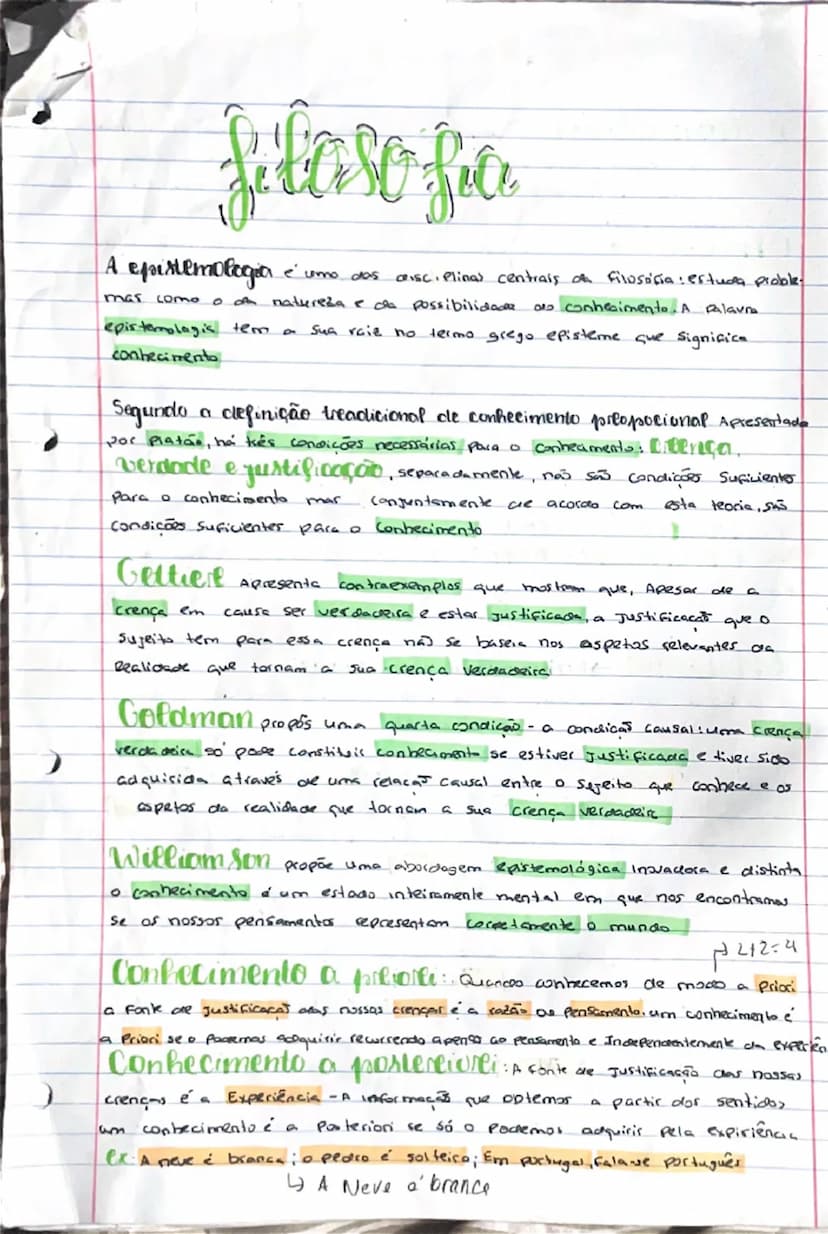 filosofia
A epistemologia é uma das disciplinas centrais da filosofia: estuda proble-
mas como o da natureza e da possibilidade do conhecimento. A palavra
epistemologia tem a sua raiz no termo grego episteme que significa
conhecimento
Segundo a definição treadicional de conhecimento preopocional Apresentada
por Platão, há três condições necessárias para o conhecimento: Crença,
verdade e justificação, separadamente, não são condições suficientes
para o conhecimento mas conjuntamente de acordo com esta teoria, são
condições suficientes para o conhecimento
Gettier Apresenta contraexemplos que mostram que, Apesar de a
crença em causa ser verdadeira e estar justificada, a justificação que o
sujeito tem para essa crença não se baseia nos aspetos relevantes da
Realidade que tornam a sua crença verdadeira
Goldman propôs uma quarta condição - a condição causal: uma crença
verdadeira só pode constituir conhecimento se estiver justificada e tiver sido
adquirida através de uma relação causal entre o sujeito que conhece e os
aspetos da realidade que tornam a sua crença verdadeira
Williamson propõe uma abordagem epistemológica inovadora e distinta
o conhecimento é um estado inteiramente mental em que nos encontramos
se os nossos pensamentos representam corretamente o mundo
↱ 2+2=4
Conhecimento a preiorei: Quando conhecemos de modo a priori
a fonte de justificação das nossas crenças é a razão ou pensamento. um conhecimento é
a Priori se o podemos adquirir recorrendo apenas ao pensamento e Independentemente da experiên
Conhecimento a postereiorei: A fonte de justificação das nossas
crenças é a Experiência - A informação que obtemos a partir dos sentidos
um conhecimento é a Posteriori se só o podemos adquirir pela expiriência
ex: A neve é branca; o pedro é solteiro; Em portugal, fala-se português
↳ A Neve é branca